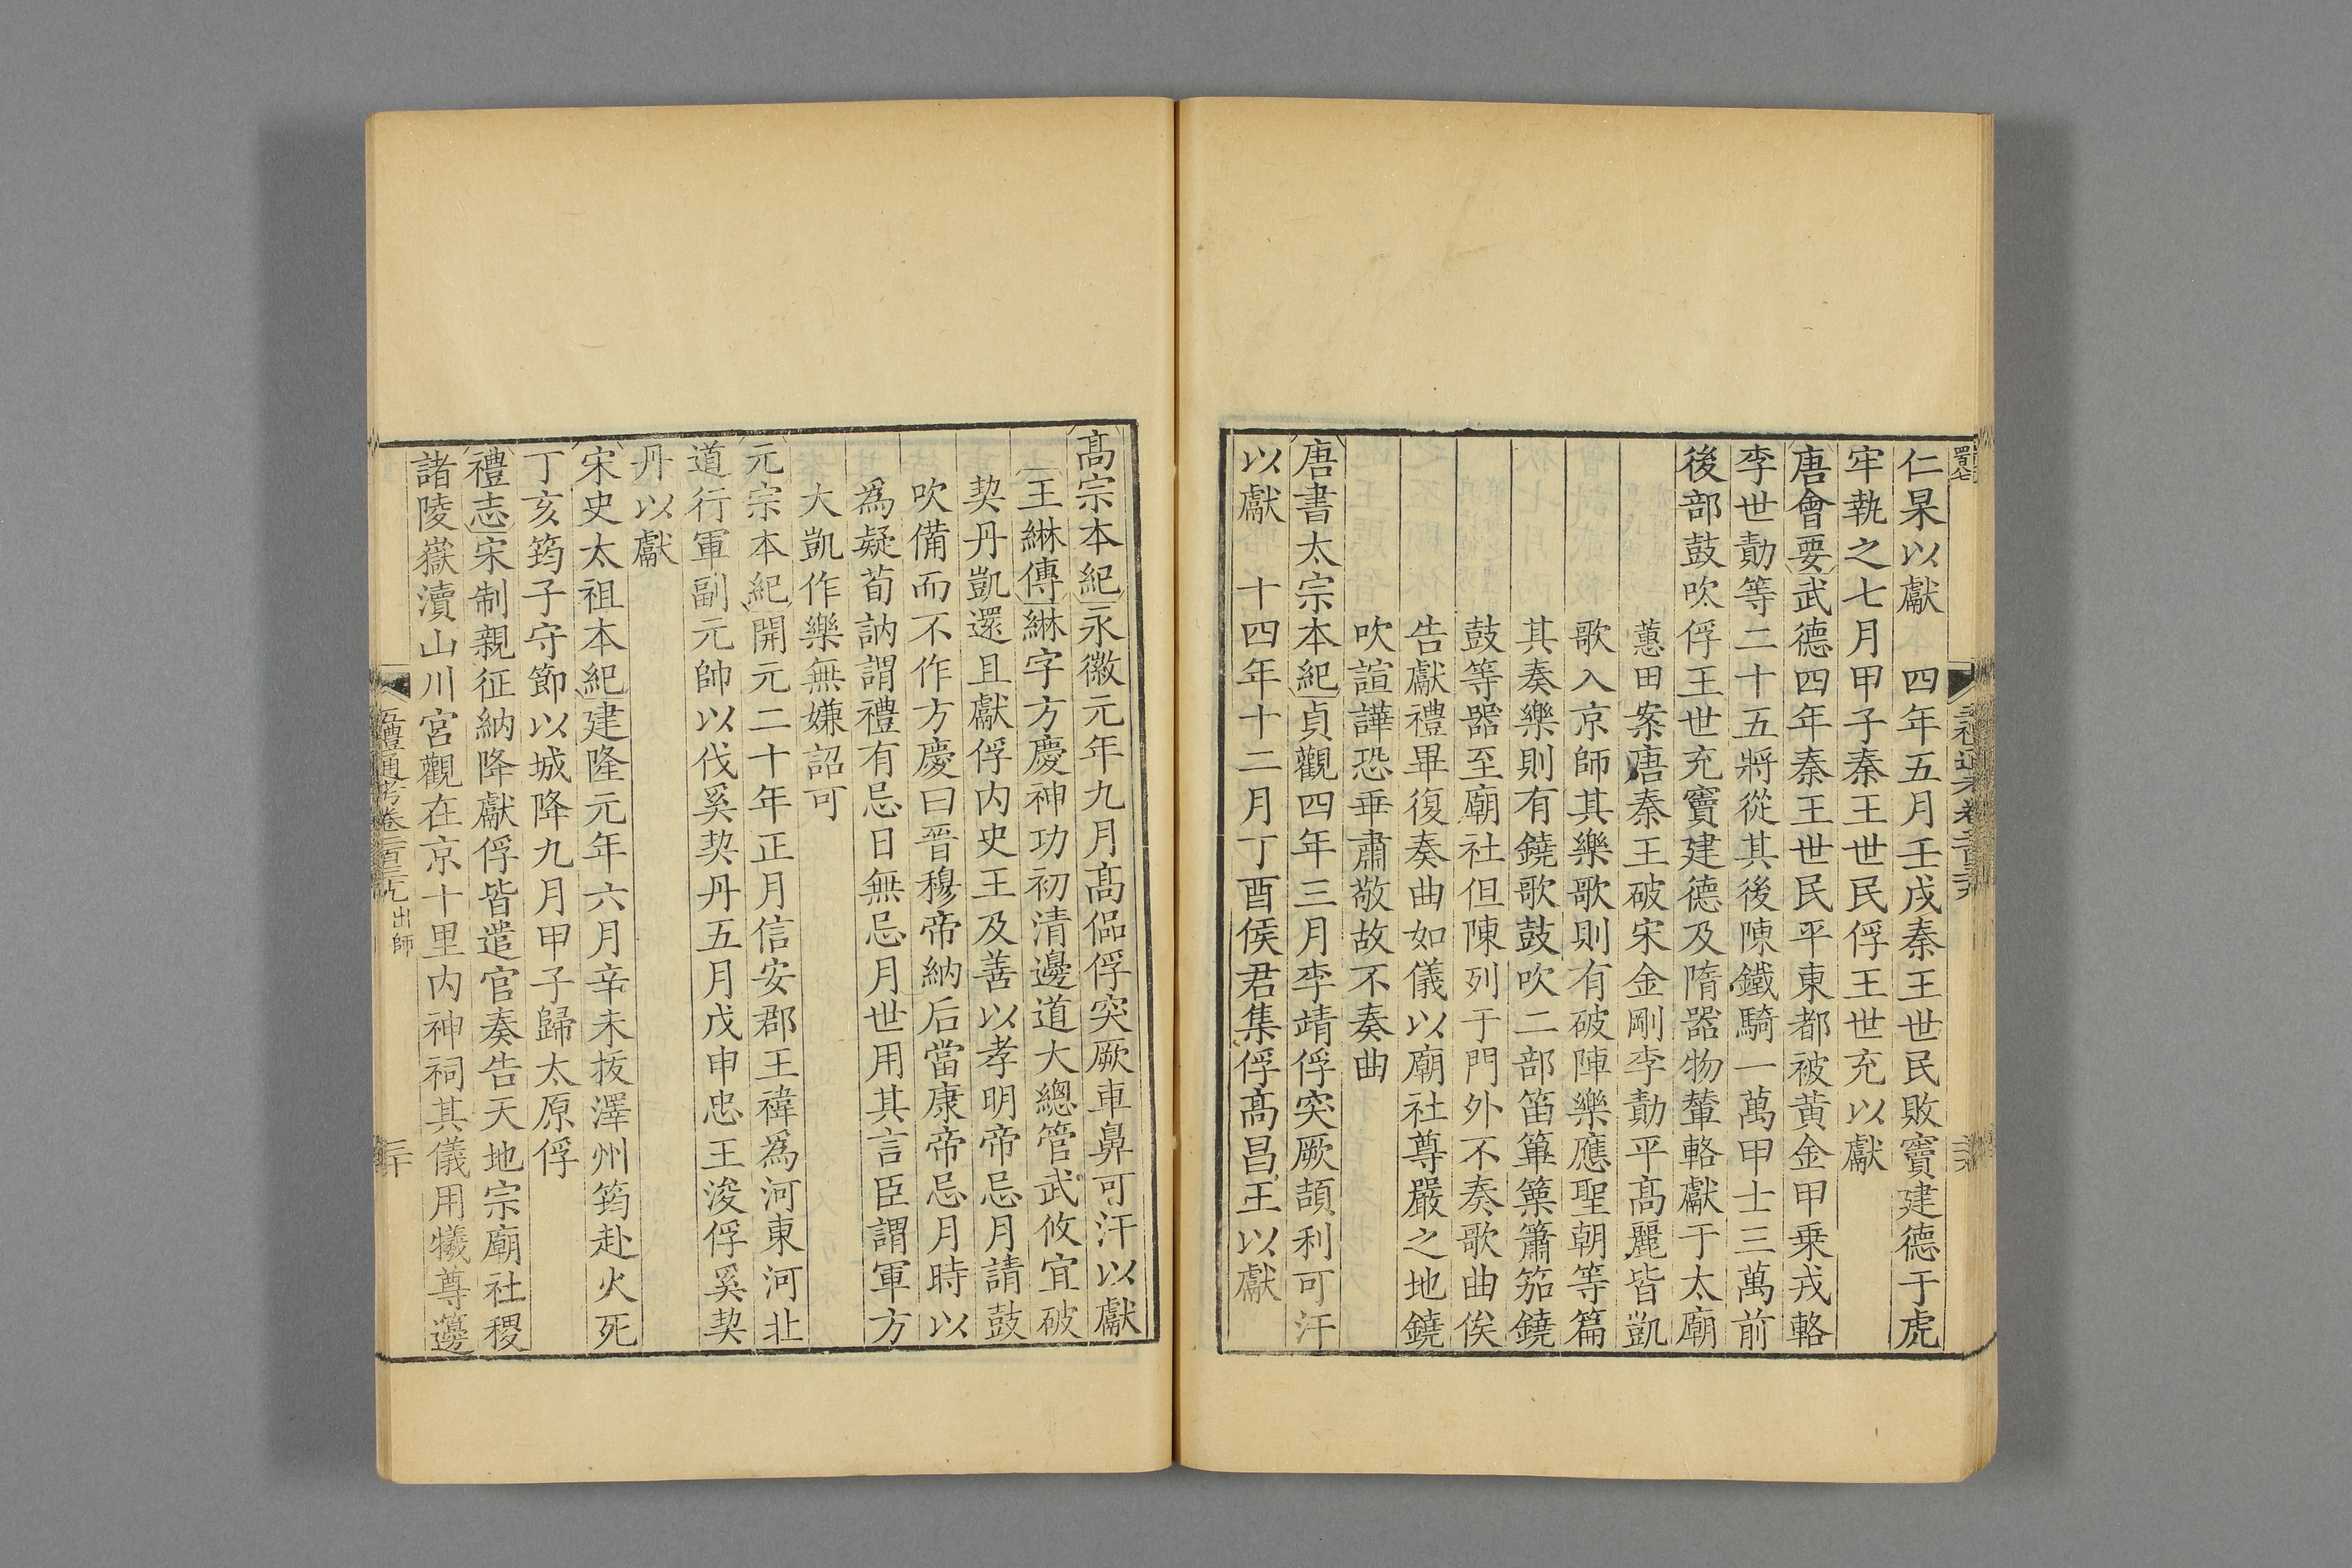 仁杲以獻　四年五月壬戌秦王世民敗竇建德于虎
牢執之七月甲子秦王世民俘王世充以獻
唐會要武德四年秦王世民平東都被黄金甲乗戎輅
李世勣等二十五將從其後陳鐵騎一萬甲士三萬前
後部鼓吹俘王世充竇建德及隋器物輦輅獻于太廟
蕙田案唐秦王破宋金剛李勣平髙麗皆凱
歌入京師其樂歌則有破陣樂應聖朝等篇
其奏樂則有鐃歌鼓吹二部笛篳篥簫笳鐃
鼓等器至廟社但陳列于門外不奏歌曲俟
告獻禮畢復奏曲如儀以廟社尊嚴之地鐃
吹諠譁恐乖肅敬故不奏曲
唐書太宗本紀貞觀四年三月李靖俘突厥頡利可汗
以獻　十四年十二月丁酉侯君集俘髙昌王以獻
髙宗本紀永徽元年九月髙偘俘突厥車鼻可汗以獻
王綝傳綝字方慶神功初清邊道大總管武攸宜破
契丹凱還且獻俘内史王及善以孝明帝忌月請鼓
吹備而不作方慶曰晉穆帝納后當康帝忌月時以
爲疑荀訥謂禮有忌日無忌月世用其言臣謂軍方
大凱作樂無嫌詔可
元宗本紀開元二十年正月信安郡王禕爲河東河北
道行軍副元帥以伐奚契丹五月戊申忠王浚俘奚契
丹以獻
宋史太祖本紀建隆元年六月辛未拔澤州筠赴火死
丁亥筠子守節以城降九月甲子歸太原俘
禮志宋制親征納降獻俘皆遣官奏告天地宗廟社稷
諸陵嶽瀆山川宮觀在京十里内神祠其儀用犧尊籩
五禮通考卷二百三十九 出師
二十